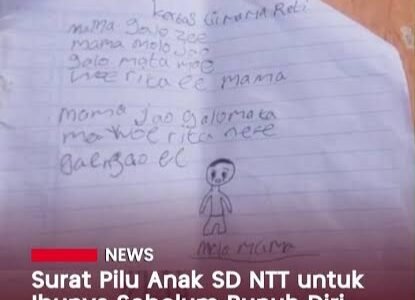 kertas Tii mama Reti
mama galo zee
mama molo Jao
galo mata mae
woe rita ee mama
mama jao galo mata
mae woe rita nee
gae ngao ee
molo mama
NEWS
Surat Pilu Anak SD NTT untuk
Ibunya Sebelum Bunuh Diri